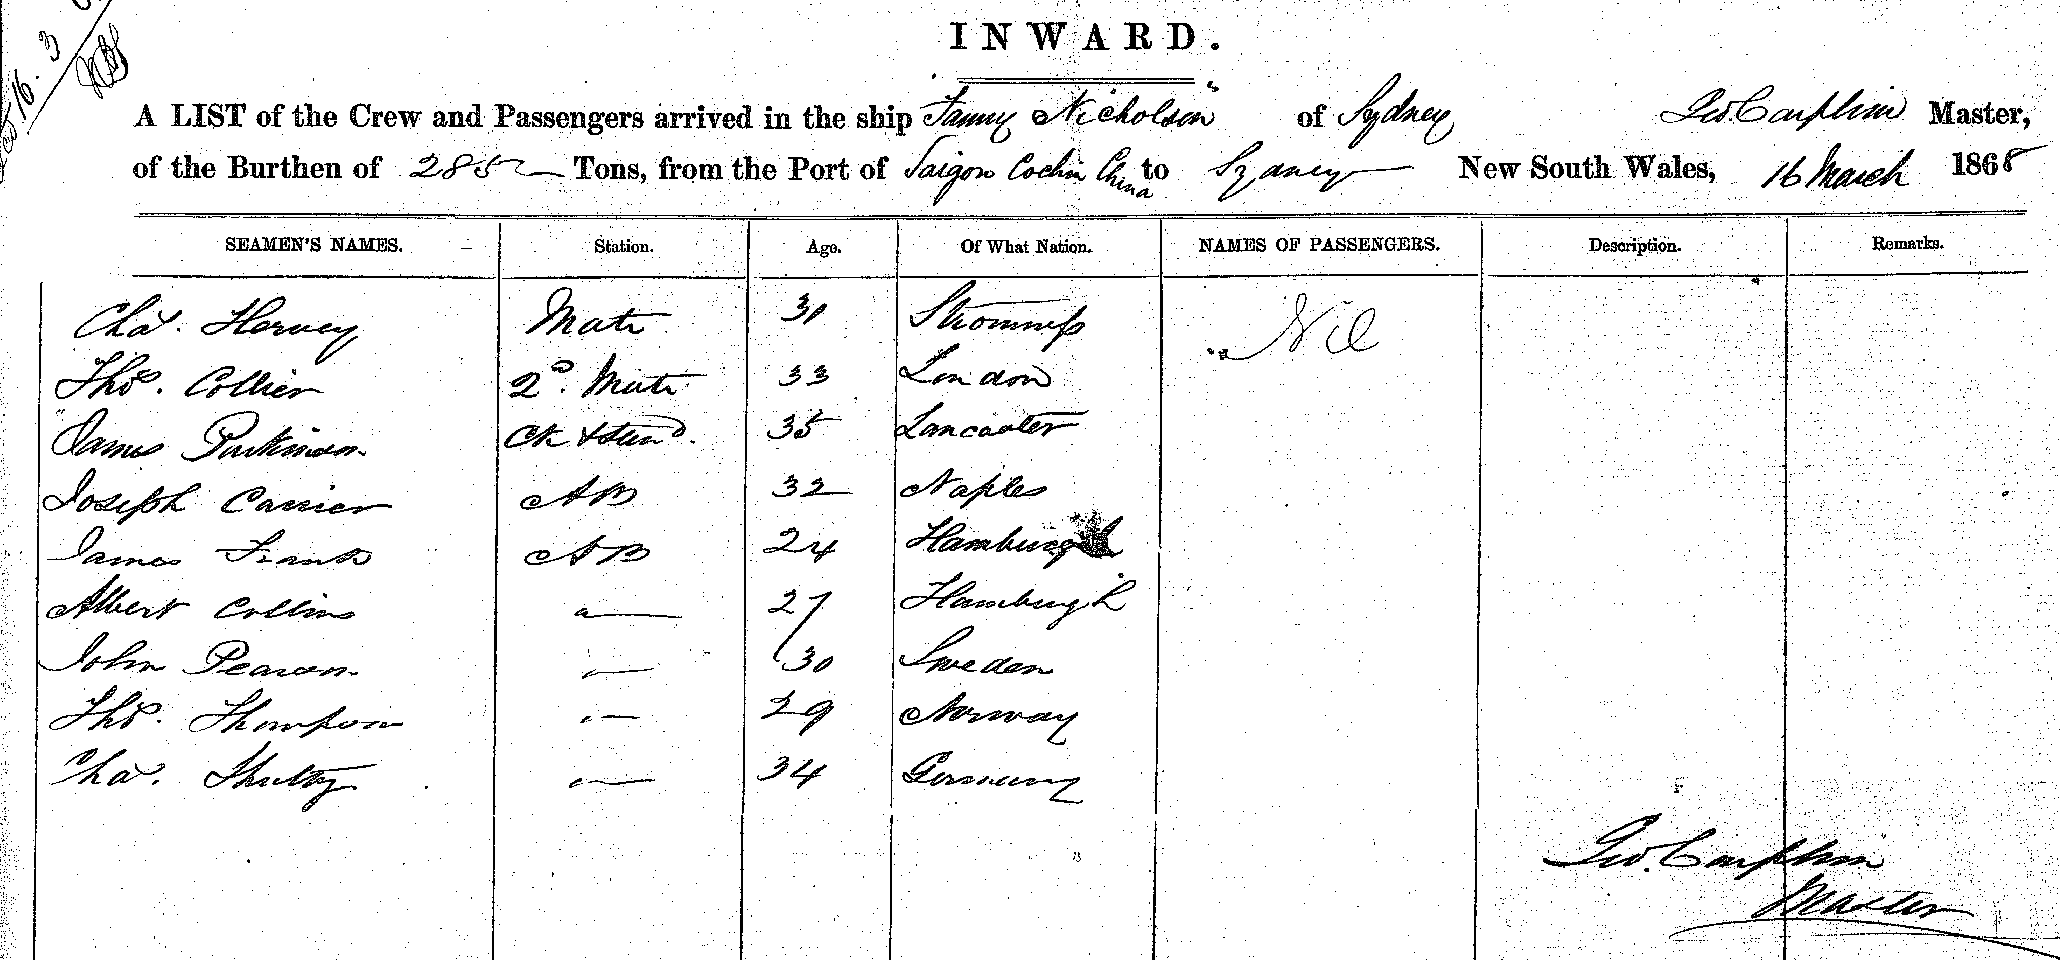 16.3
INWARD.
A LIST of the Crew and Passengers arrived in the ship Fanny Nicholson" of Sydney Geo Master,
of the Burthen of 285 Tons, from the Port of Saigon Cochin China to Sydney New South Wales, 16 March 1868
SEAMEN'S NAMES. Station. Age. Of What Nation. NAMES OF PASSENGERS. Description. Remarks.
Chas. Hervey Mate 31 Stromness Nil
Thos. Collier 2d. Mate 33 London
James Parkinson Ck & Stewd. 35 Lancaster
Joseph Carrier AB 32 Naples
James Frank AB 24 Hamburg
Albert Collins 〃 — 27 Hamburgh
John Pearson 〃 — 30 Sweden
Thos. Thompson 〃 — 29 Norway
Chas. 〃 — 34 Germany
Geo.
Master